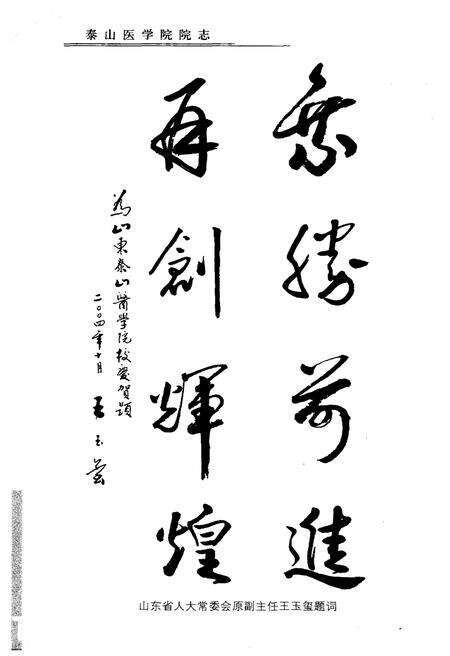 泰山医学院院志
乘勝前進
再創輝煌
為山東泰山醫學院校慶賀題
二〇〇四年十月 王玉璽
山东省人大常委会原副主任王玉玺题词